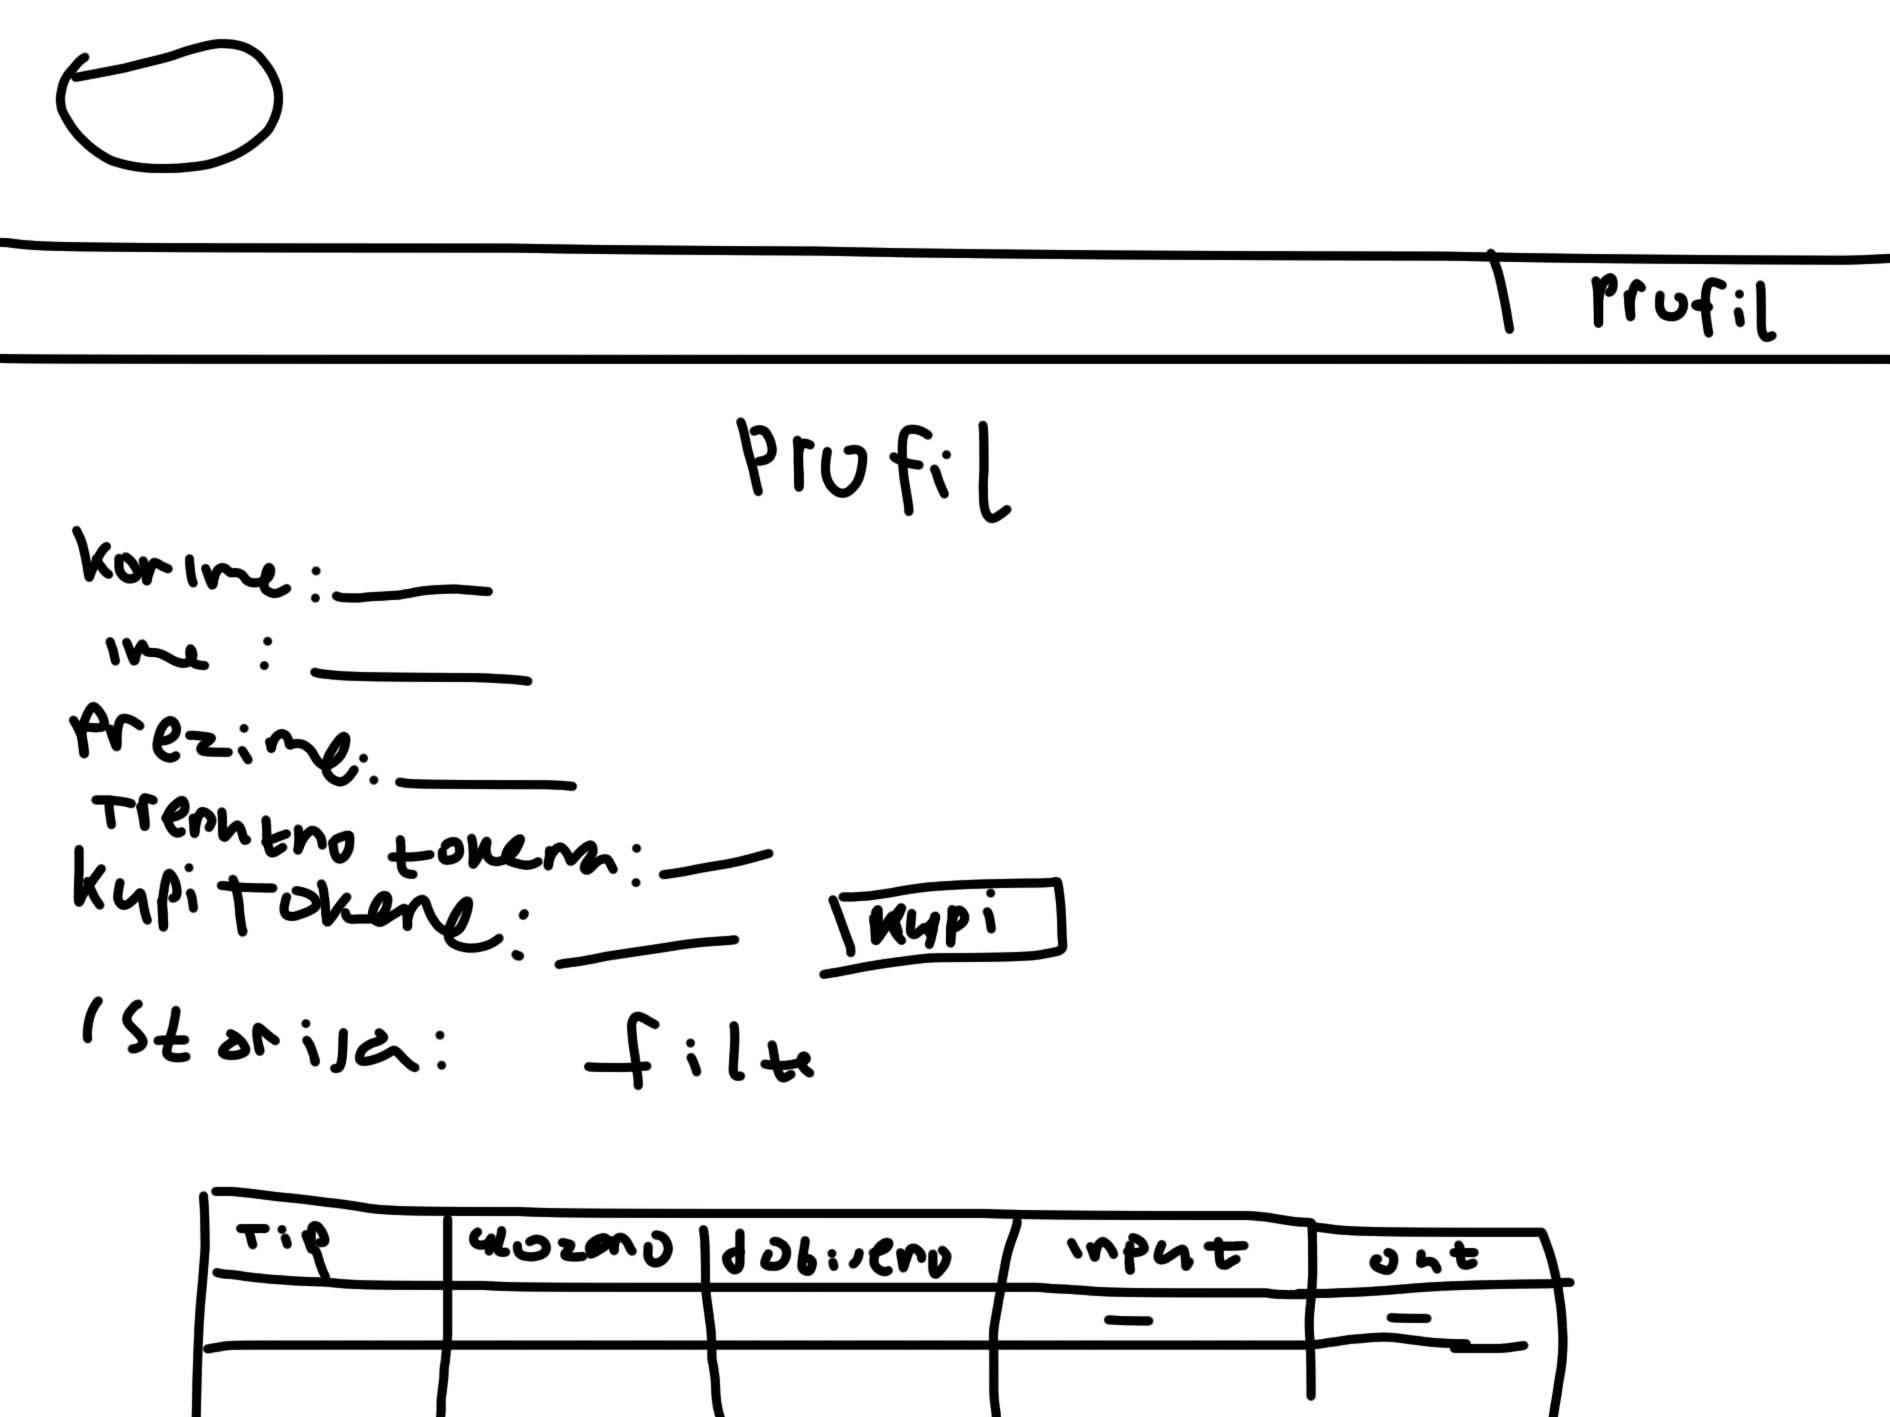 Profil
Profil
Korime:
ime :
Prezime:
Trenutno tokena:
Kupi Tokene: Kupi
istorija: filte
Tip ulozeno dobijeno input out
- -